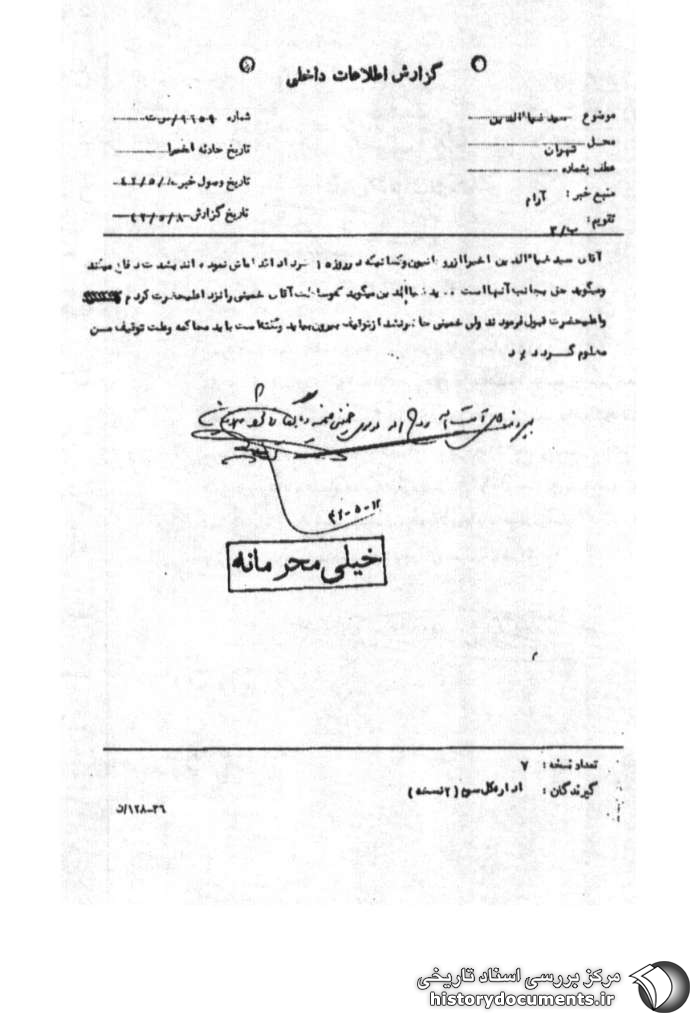 گزارش اطلاعات داخلی
موضوع سید ضیاالدین
محل تهران
عطف بشماره
منبع خبر: آرام
تقویم: ب/۳
شماره
تاریخ حادثه اخیرا
تاریخ وصول خبر ۴۲/۵/
تاریخ گزارش ۴۲/۵/۸
آقای سید ضیاالدین اخیرا از روحانیون و کسانیکه در روز ۱۵ خرداد اند اماتی نموده اند بشدت دفاع میکند
و میگوید حق بجانب آنها است سید ضیاالدین میگوید که وساطت آقای خمینی را نزد اعلیحضرت کردم
و اعلیحضرت قبول فرمودند ولی خمینی حاضر نشد از توقیف بیرون بیاید و گفته است باید محاکمه و علت توقیف من
معلوم گردد
۴۲-۵-۱۲
خیلی محرمانه
تعداد نسخه: ۷
گیرندگان: اداره کل سوم (۲ نسخه)
۱۲۸-۳۶/ن
مرکز بررسی اسناد تاریخی
historydocuments.ir